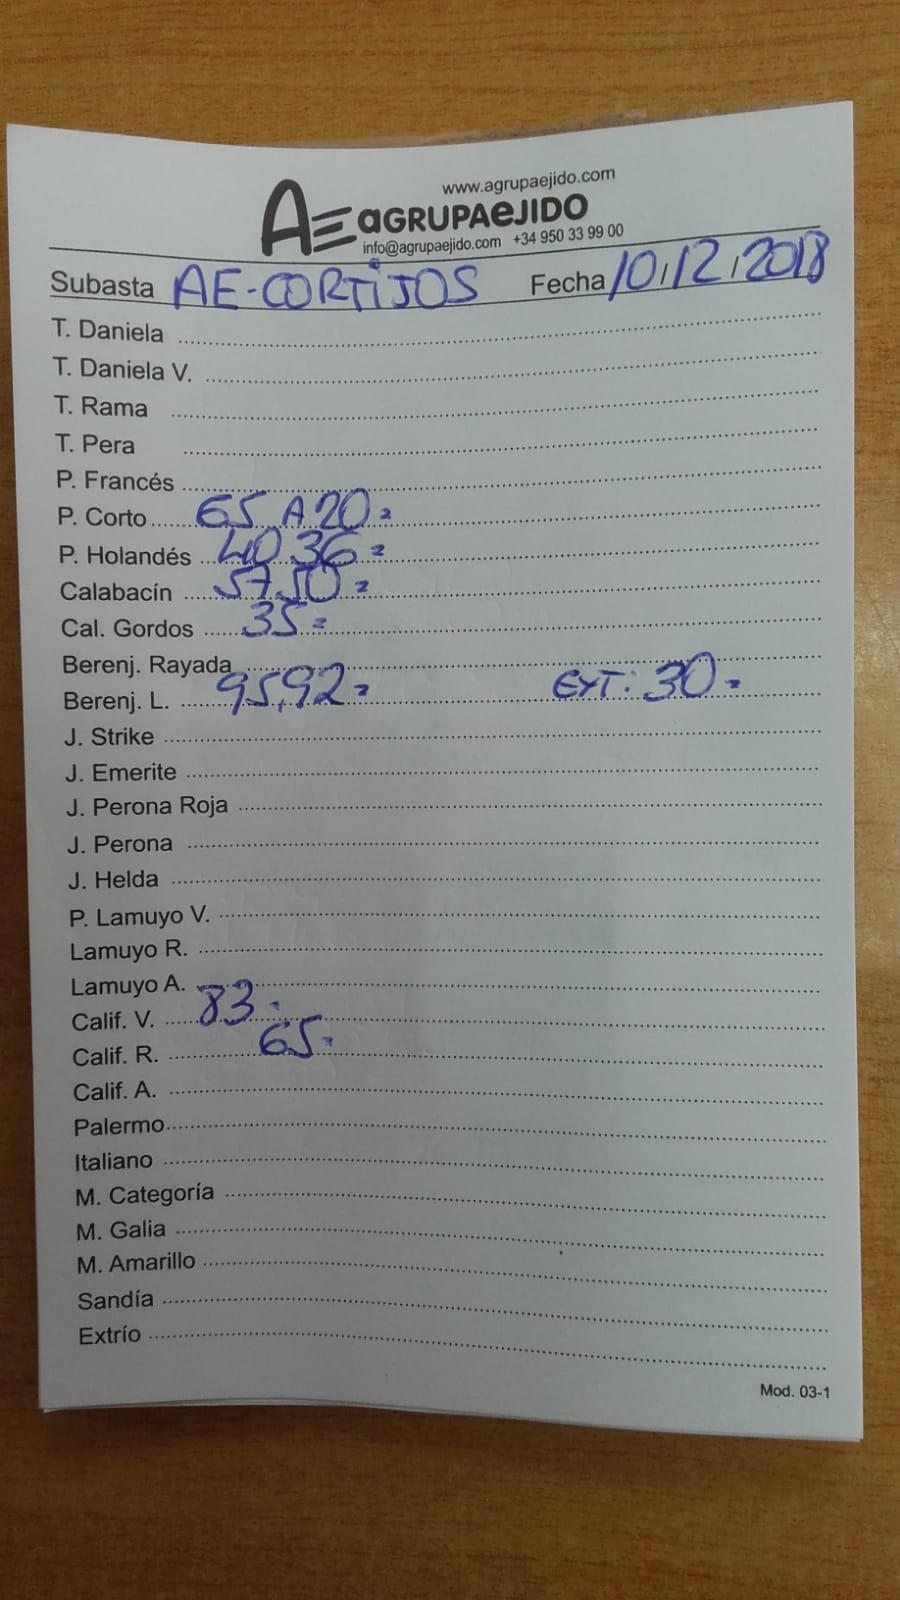 www.agrupaejido.com
AE aGRUPAeJIDO
info@agrupaejido.com +34 950 33 99 00
Subasta AE-CORTIJOS Fecha 10/12/2018
T. Daniela
T. Daniela V.
T. Rama
T. Pera
P. Francés
P. Corto 65 A 20=
P. Holandés 40 36=
Calabacín 57 50=
Cal. Gordos 35=
Berenj. Rayada
Berenj. L. 95,92= EXT: 30=
J. Strike
J. Emerite
J. Perona Roja
J. Perona
J. Helda
P. Lamuyo V.
Lamuyo R.
Lamuyo A.
Calif. V. 83=
Calif. R. 65=
Calif. A.
Palermo
Italiano
M. Categoría
M. Galia
M. Amarillo
Sandía
Extrío
Mod. 03-1